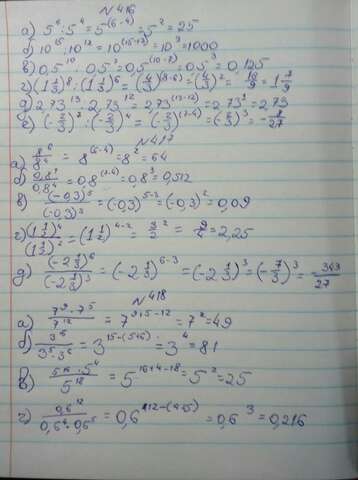 №416
а) 5⁶:5⁴=5^(6-4)=5²=25
б) 10¹⁵:10¹²=10^(15-12)=10³=1000
в) 0,5¹⁰:0,5⁷=0,5^(10-7)=0,5³=0,125
г) (1 1/3)⁸:(1 1/3)⁶=(4/3)^(8-6)=(4/3)²=16/9=1 7/9
д) 2,73¹³:2,73¹²=2,73^(13-12)=2,73¹=2,73
е) (-2/3)⁷:(-2/3)⁴=(-2/3)^(7-4)=(-2/3)³=-8/27
№417
а) 8⁶/8⁴=8^(6-4)=8²=64
б) 0,8⁷/0,8⁴=0,8^(7-4)=0,8³=0,512
в) (-0,3)⁵/(-0,3)³=(-0,3)^5-3=(-0,3)²=0,09
г) (1 1/2)⁴/(1 1/2)²=(1 1/2)^4-2=3/2²=9/4=2,25
д) (-2 1/3)⁶/(-2 1/3)³=(-2 1/3)^6-3=(-2 1/3)³=(-7/3)³=-343/27
№418
а) 7⁹·7⁵/7¹²=7^9+5-12=7²=49
б) 3¹⁵/3⁵·3⁶=3^15-(5+6)=3⁴=81
в) 5¹⁶·5⁴/5¹⁸=5^16+4-18=5²=25
г) 0,6¹²/0,6⁴·0,6⁵=0,6^12-(4+5)=0,6³=0,216